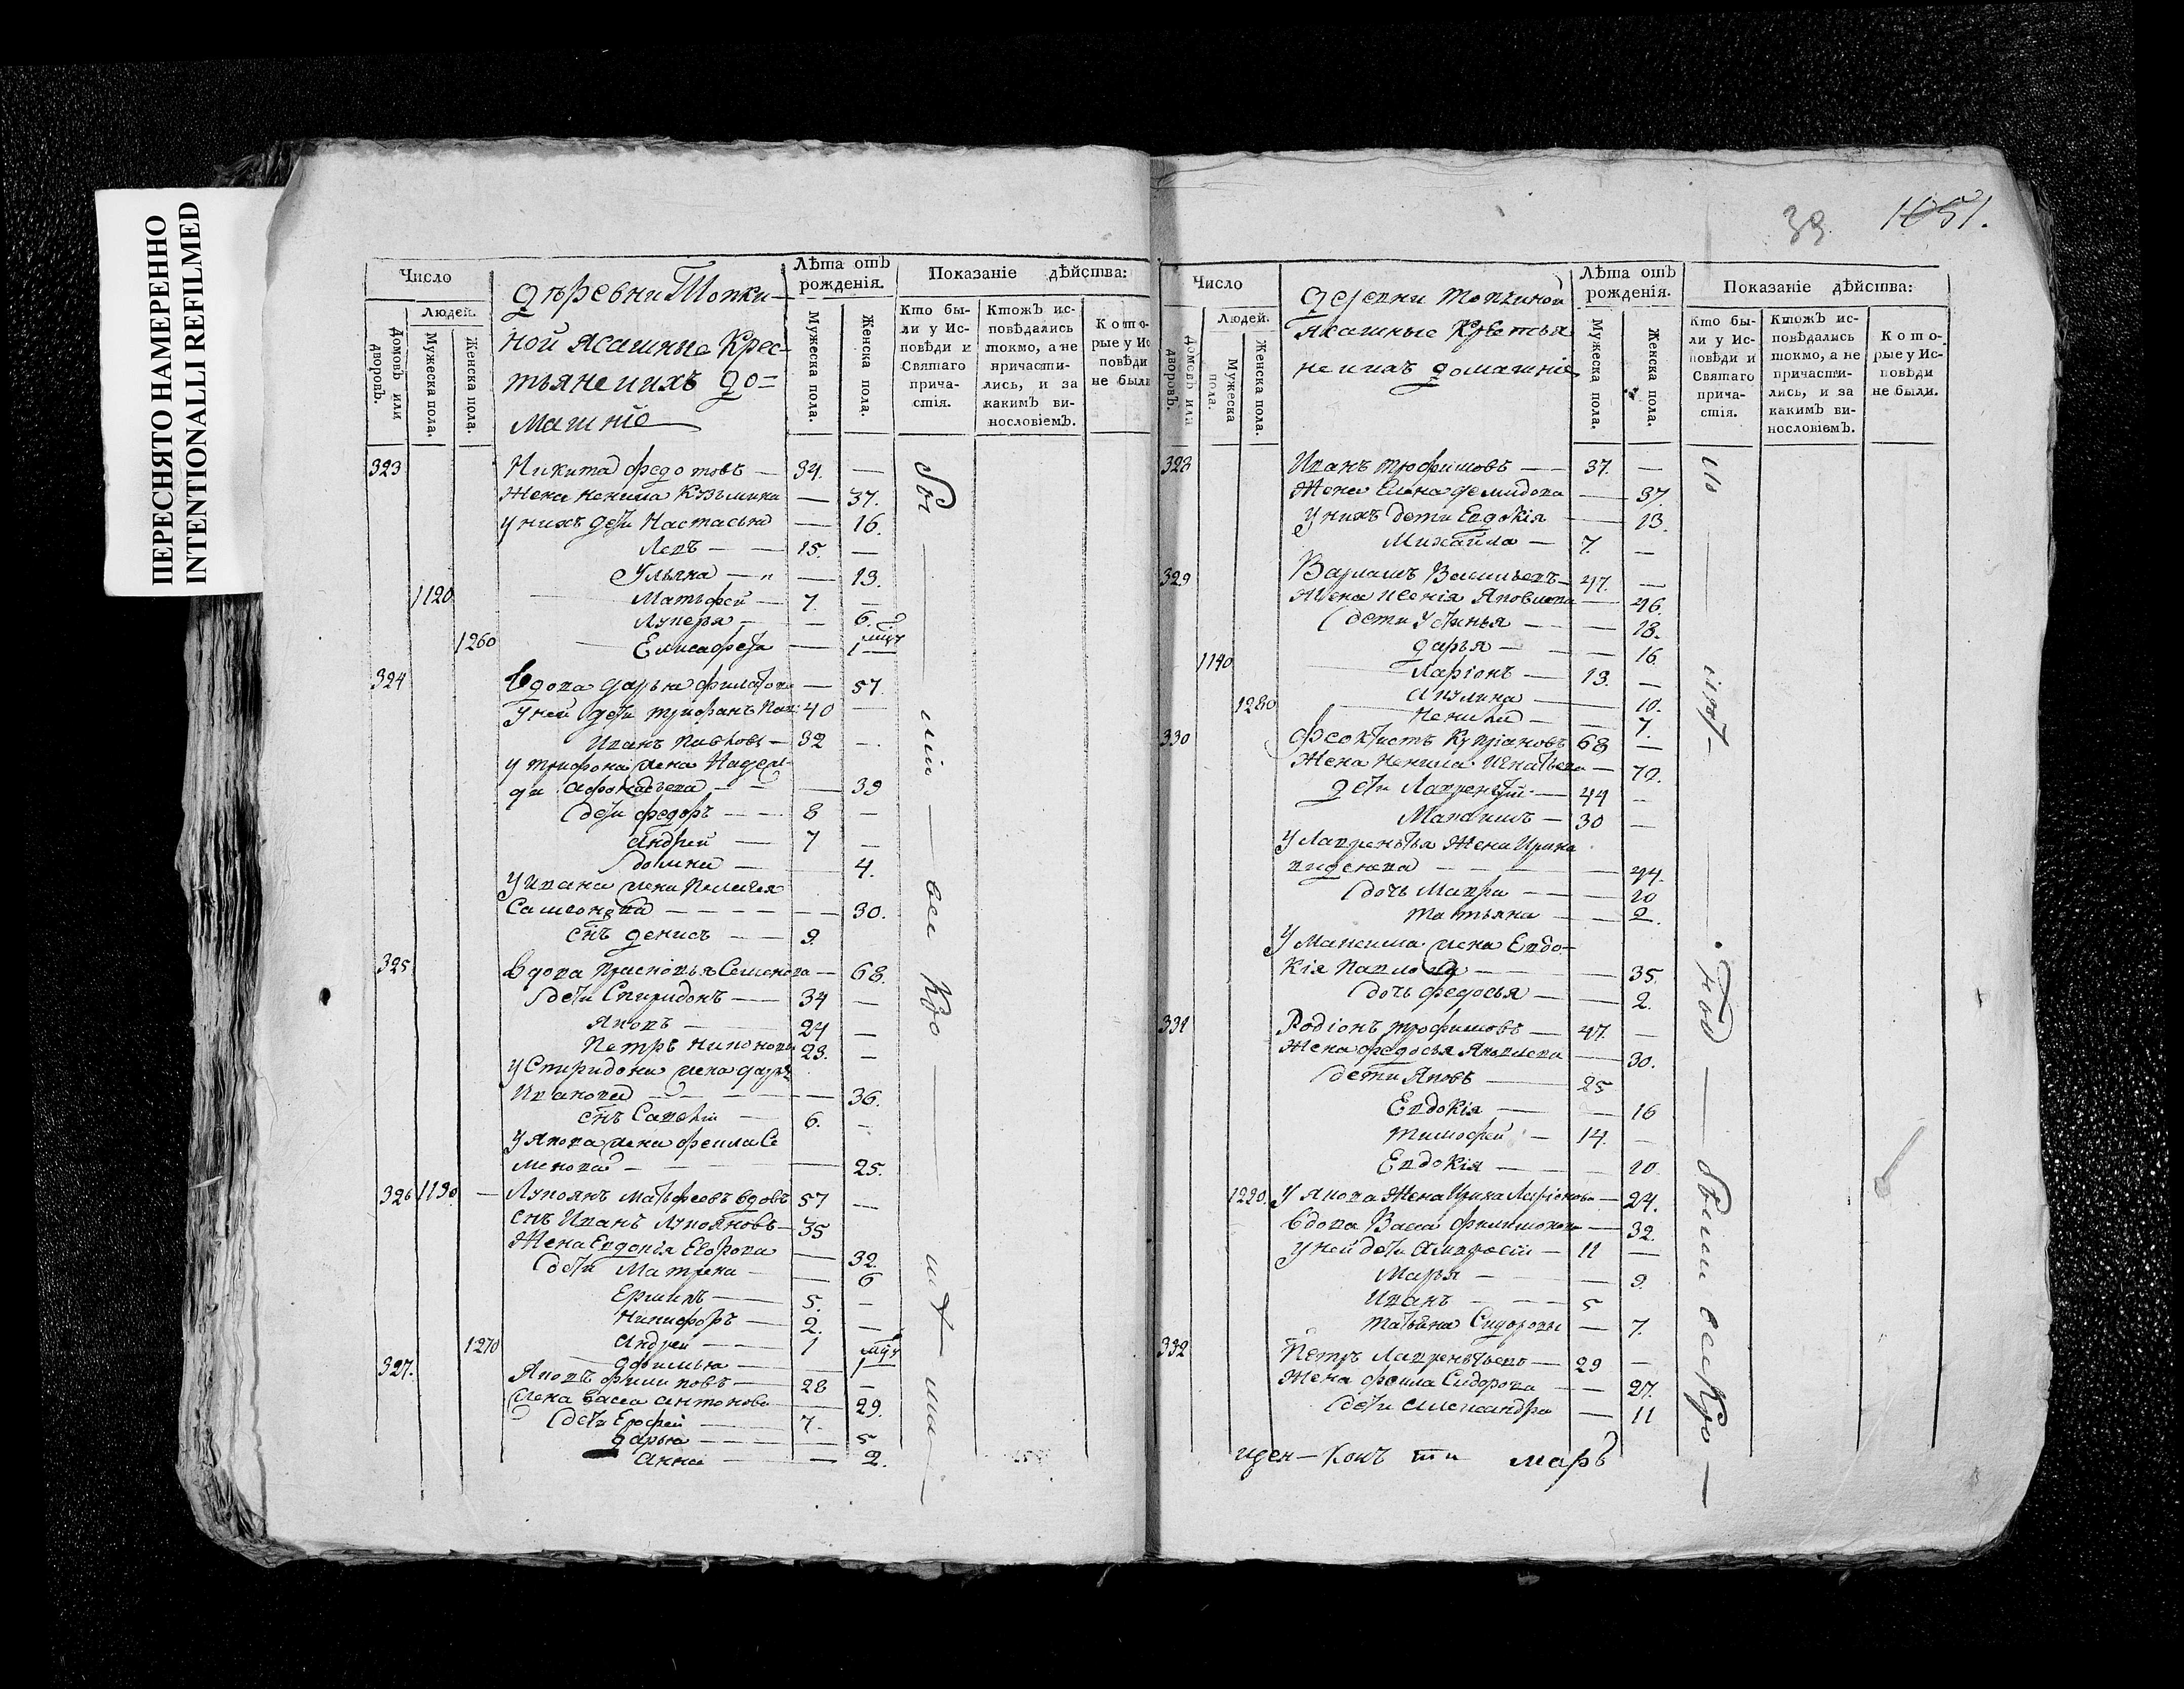 ПЕРЕСНЯТО НАМЕРЕННО
INTENTIONALLI REFILMED
Число
Людей.
Домовъ или дворовъ.
Мужеска пола.
Женска пола.
деревни Топки-
ной ясашные Крес-
тьяне и ихъ до=
машніе
Лѣта отъ рожденія.
Мужеска пола.
Женска пола.
Показаніе дѣйства:
Кто бы-
ли у Ис-
повѣди и
Святаго
прича-
стія.
Ктожъ ис-
повѣдались
токмо, а не
причасти-
лись, и за
какимъ ви-
нословіемъ.
Кото-
рые у Ис
повѣди
не были
323 Никита Федотовъ — 34. —
Жена Ненила Кузьмина — 37.
у нихъ дети Настасья — 16.
Левъ — 15. —
Ульяна — 13.
1120 Матьфей — 7. —
Лукерья — 6.
1260 Елисафета — 1
324 Вдова дарья филатова — 57.
У ней дети трифанъ Пав: 40 —
Иванъ Павловъ — 32 —
у трифона жена Надеж-
да Афонасьева — 39
дети федоръ — 8 —
Андрей — 7 —
домна — 4.
у Ивана жена Пелагея
Самсонова — 30.
снъ денисъ — 9.
325 Вдова прасковья Семенова — 68.
дети Спиридонъ — 34 —
Яковъ — 24 —
Петръ Никоновы 23. —
у Спиридона жена дарья
Иванова — 36.
снъ Савелiй — 6. —
у Якова жена фекла Се
менова — 25.
326 1130 Лукоянъ матьфеевъ вдовъ 57 —
снъ Иванъ Лукояновъ — 35
Жена Евдокія Егорова — 32.
дети Матрена — 6
Ермилъ — 5. —
Никифоръ — 2. —
Андрей — 1
1270 Афимья — 1
327. Яковъ филиповъ — 28 —
жена Васса антонова — 29.
дети Ерофей — 7.
дарья — 5
анна — 2.
39 1051.
Число
Людей.
Домовъ или дворовъ.
Мужеска пола.
Женска пола.
деревни топкиной
ясашные Крестья
не и ихъ домашніе
Лѣта отъ рожденія.
Мужеска пола.
Женска пола.
Показаніе дѣйства:
Кто бы-
ли у Ис-
повѣди и
Святаго
прича-
стія.
Ктожъ ис-
повѣдались
токмо, а не
причасти-
лись, и за
какимъ ви-
нословіемъ.
Кото-
рые у Ис-
повѣди
не были.
328 Иванъ трофимовъ — 37. —
Жена Елена демидова — 37.
У нихъ дети Евдокія — 13.
Михайла — 7. —
329 Варламъ Васильевъ — 47. —
Жена Ксенія Яковлева — 46.
дети Устинья — 18.
дарья — 16.
1140 Ларіонъ — 13. —
1280 Акулина — 10.
Ненила — 7.
330 Феоктистъ Купріановъ 68 —
Жена Ненила Игнатьева — 70.
дети Лаврентій — 44 —
Максимъ — 30 —
У Лаврентья Жена Ирина
Авдеева — 44.
дочь Мавра — 20
татьяна — 2.
У Максима жена Евдо-
кія Павлова — 35.
дочь федосья — 2.
331 Родіонъ трофимовъ — 47. —
Жена федосья Яковлева — 30.
дети Яковъ — 25
Евдокія — 16
тимофей — 14. —
Евдокія — 10.
1290. У Якова Жена Ирина Ларіонова — 24.
вдова Васса филимонова — 32.
у ней дети Амвросій — 11 —
Марья — 9.
Иванъ — 5
татьяна Сидоровы — 7.
332 Петръ Лаврентьевъ — 29 —
Жена фекла Сидорова — 27.
дети Александра — 11